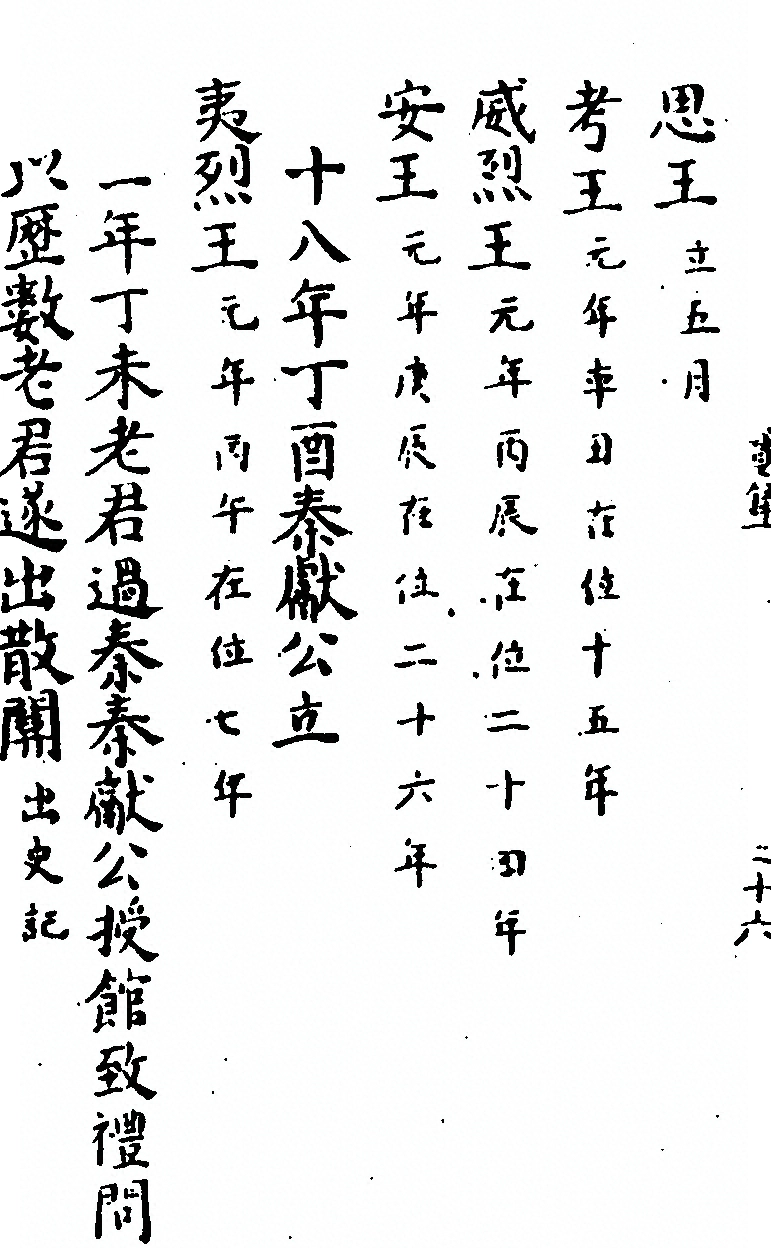 二十六
思王立五月
考王元年辛丑在位十五年
威烈王元年丙辰在位二十四年
安王元年庚辰在位二十六年
十八年丁酉秦獻公立
夷烈王元年丙午在位七年
一年丁未老君過秦秦獻公授館致禮問
以歷數老君遂出散關出史記